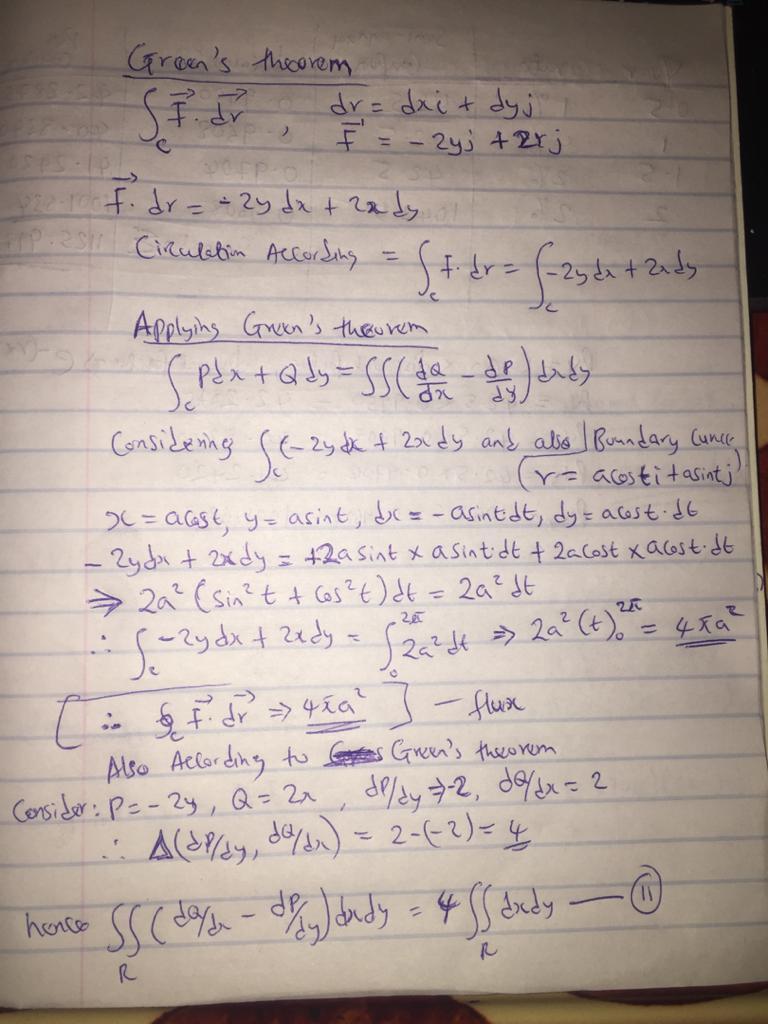 Green's theorem
∫c F⃗. dr⃗ , dr = dxi + dyj
F⃗ = -2yj + 2xj
F⃗. dr = -2y dx + 2x dy
Circulation According = ∫c F. dr = ∫c -2y dx + 2x dy
Applying Green's theorem
∫c Pdx + Q dy = ∫∫(dQ/dx - dP/dy) dxdy
Considering ∫c (-2y dx + 2x dy and also Boundary Curve
(r = acosti + asintj)
x = acost, y = asint, dx = -asint dt, dy = acost. dt
- 2ydx + 2xdy = +2asint x asint dt + 2acost x acost. dt
⇒ 2a² (sin²t + cos²t) dt = 2a² dt
∴ ∫c -2y dx + 2x dy = ∫₀^2π 2a² dt ⇒ 2a² (t)₀^2π = 4πa²
[∴ ∮c F⃗. dr⃗ ⇒ 4πa² ] — flux
Also According to Green's theorem
Consider: P = -2y, Q = 2x, dP/dy ⇒ -2, dQ/dx = 2
∴ Δ(dP/dy, dQ/dx) = 2-(-2) = 4
hence ∫∫R (dQ/dx - dP/dy) dxdy = 4 ∫∫R dxdy — (II)